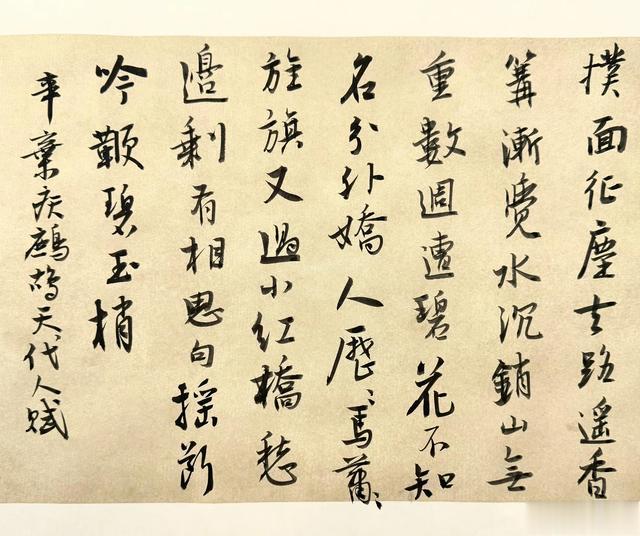 撲面征塵去路遙香
篝漸覺水沉銷山無
重數週遭碧花不知
名分外嬌人歷〻馬蕭〻
旌旗又過小紅橋愁
邊剩有相思句搖斷
吟鞭碧玉梢
辛棄疾鷓鴣天代人賦